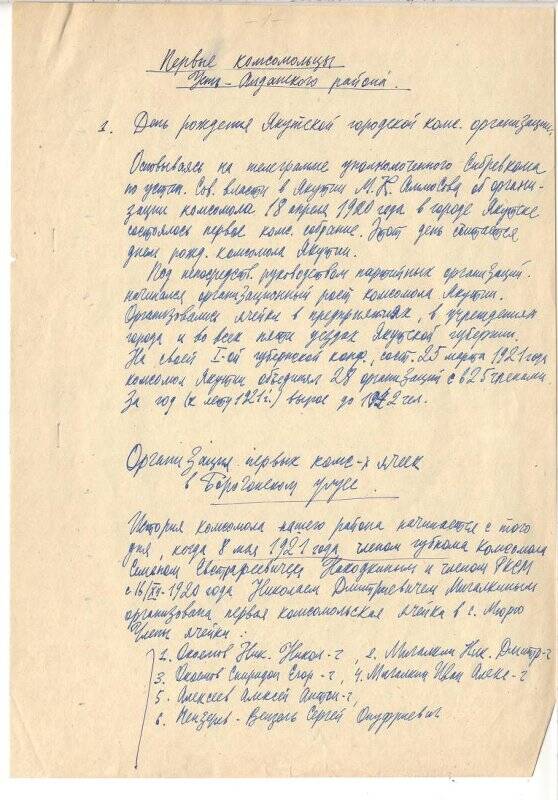 - 1 -
Первые комсомольцы
Усть-Алданского района.
1. День рождения Якутской городской комс. организации.
Основываясь на телеграмме уполномоченного Сибревкома
по устан. Сов. власти в Якутии М. К. Аммосова об органи-
зации комсомола 18 апреля 1920 года в городе Якутске
состоялось первое комс. собрание. Этот день считается
днем рожд. комсомола Якутии.
Под непосредств. руководством партийных организаций
начинался организационный рост комсомола Якутии.
Организовались ячейки в предприятиях, в учреждениях
города и во всех пяти уездах Якутской губернии.
На своей I-ой губернской конф., сост. 25 марта 1921 года
комсомол Якутии объединял 28 организаций с 825 членами
За год (к лету 1921 г.) вырос до чел.
Организация первых комс-х ячеек
в Борогонском улусе.
История комсомола нашего района начинается с того
дня, когда 8 мая 1921 года, членом губкома комсомола
Семеном Находкиным и членом РКСМ
с 16/XII-1920 года Николаем Дмитриевичем Мигалкиным
организована первая комсомольская ячейка в с. Мюрю
Члены ячейки:
1. Окоемов Ник. Никол-ч, 2. Мигалкин Ник. Дмитр-ч
3. Окоемов Спиридон Егор-ч, 4. Мигалкин Иван Алекс-ч
5. Алексеев Алексей Антон-ч,
6. Сергей Онуфриевич